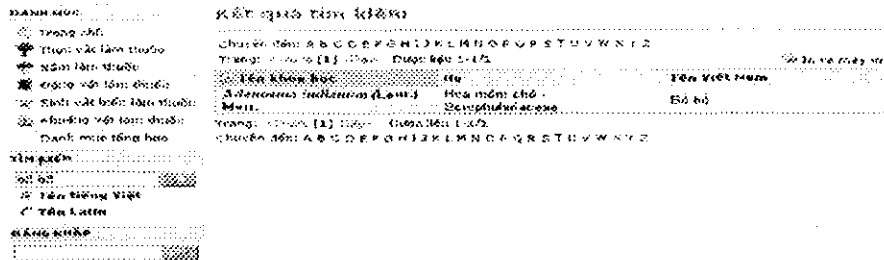 DANH MỤC
Trang chủ
Thực vật làm thuốc
Nấm làm thuốc
Động vật làm thuốc
Sinh vật biển làm thuốc
Khoáng vật làm thuốc
Danh mục tổng hợp
TÌM KIẾM
Tên tiếng Việt
Tên Latin
ĐĂNG NHẬP
Kết quả tìm kiếm
Chuyển đến: A B C D E F G H I J K L M N O P Q R S T U V W X Y Z
Trang: [1] Dược liệu 1-1/1
In ra máy in
Tên khoa học Họ Tên Việt Nam
Adenosma indianum (Lour.) Merr. Hoa mõm chó - Scrophulariaceae Bồ bồ
Trang: [1] Dược liệu 1-1/1
Chuyển đến: A B C D E F G H I J K L M N O P Q R S T U V W X Y Z